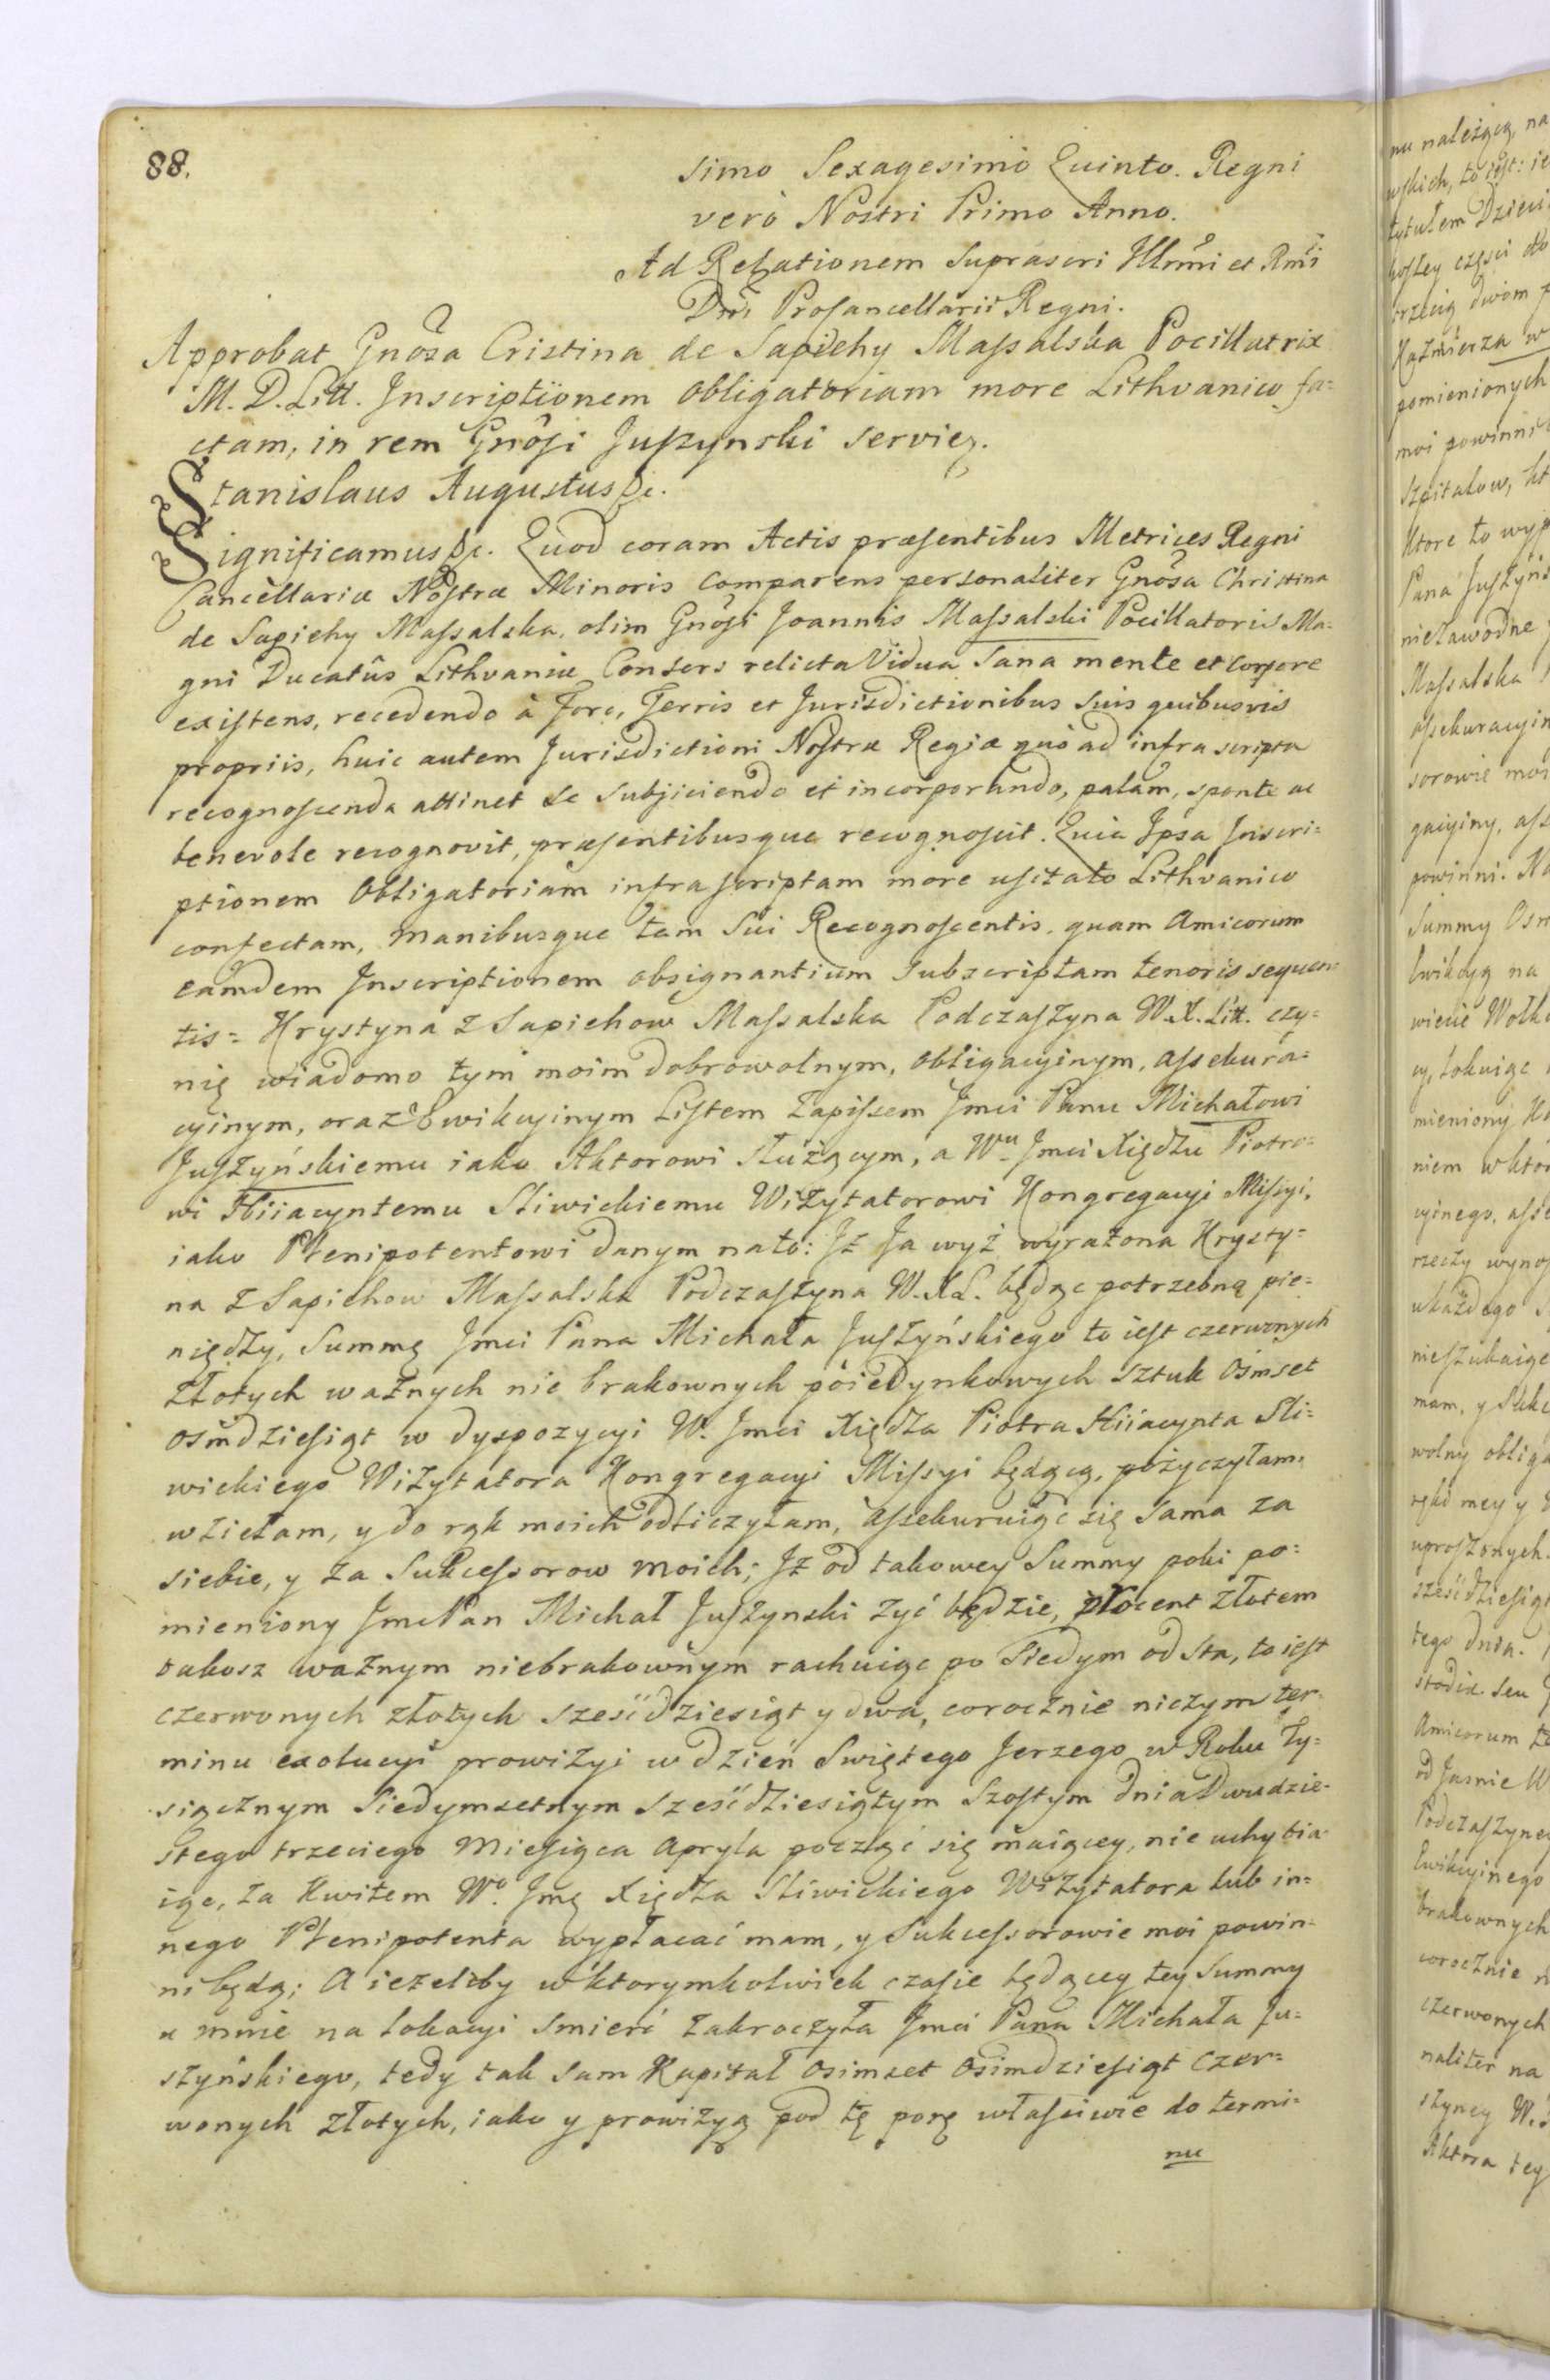 88.
simo Sexagesimo Quinto. Regni
verò Nostri Primo Anno.
Ad Relationem suprascri Illrmi et Rmi
Dni Procancellarii Regni.
Approbat Gnosa Cristina de Sapiehy Massalska Pocillatrix
M. D. Litt. Inscriptionem obligatoriam more Lithvanico fa=
ctam, in rem Gnosi Juszynski servieȝ.
Stanislaus Augustus &c.
Significamus &c. Quod coram Actis præsentibus Metrices Regni
Cancellariæ Nostræ Minoris Comparens personaliter Gnosa Christina
de Sapiehy Massalska, olim Gnosi Joannis Massalski Pocillatoris Ma=
gni Ducatûs Lithvaniæ Consors relicta Vidua Sana mente et Corpore
existens, recedendo à Foro, Terris et Jurisdictionibus suis quibusvis
propriis, huic autem Jurisdictioni Nostræ Regiæ quò ad infra scripta
recognoscenda attinet se subjiciendo et incorporando, palàm, sponte ac
benevole recognovit, præsentibusque recognoscit. Quia Ipsa Inscri=
ptionem Obligatoriam infra scriptam more usitato Lithvanico
confectam, manibusque tam Sui Recognoscentis, quam Amicorum
eamdem Inscriptionem obsignantium subscriptam tenoris sequen=
tis = Krystyna z Sapiehow Massalska Podczaszyna W. X. Litt. czy=
nię wiadomo tym moim dobrowolnym, obligacyinym, assekura=
cyinym, oraz Ewikcyinym Listem Zapissem Jmci Panu Michałowi
Juszyńskiemu iako Aktorowi służącym, a Wu Jmci Xiędzu Piotro=
wi Hiiacyntemu Sliwickiemu Wizytatorowi Kongregacyi Missyi,
iako Plenipotentowi danym na to: Iż Ja wyż wyrażona Krysty=
na z Sapiehow Massalska Podczaszyna W. X L. będąc potrzebną pie=
niędzy, Summę Jmci Pana Michała Juszyńskiego to iest czerwonych
złotych ważnych nie brakownych poiedynkowych sztuk Osmset
osmdziesiąt w dyspozycyi W. Jmci Xiędza Piotra Hiiacynta Sli=
wickiego Wizytatora Kongregacyi Missyi będącą, pożyczyłam,
wziełam, y do rąk moich odliczyłam, assekuruiąc się Sama za
siebie, y za Sukcessorow moich; Iż od takowey Summy poki po=
mieniony Jmc Pan Michał Juszynski żyć będzie, procent złotem
takosz ważnym niebrakownym rachuiąc po Siedym od Sta, to iest
czerwonych złotych sześćdziesiąt y dwa, corocznie niczym ter
minu exolucyi prowizyi w dzień Swiętego Jerzego w Roku Ty=
siącznym Siedymsetnym Sześćdziesiątym Szostym dnia Dwudzie=
stego trzeciego Miesiąca Apryla począć się maiącey, nie uchybia
iąc, za Kwitem Wo Jmę Xiędza Sliwickiego Wizytatora lub in=
nego Plenipotenta wypłacać mam, y Sukcessorowie moi powin=
ni będą; A iezeliby w ktorymkolwiek czasie będącey tey Summy
u mnie na lokacyi Smierć zakroczyła Jmci Pana Michała Ju=
szyńskiego, tedy tak Sam Kapitał Osimset Osimdziesiąt Czer=
wonych złotych, iako y prowizyą pod tę porę własciwie do termi=
nu
nu należącą, na
wskich, to iest: ie
tytułem Dzieci
trzecią dwom
Kaźmierza w
pomienionych
moi powinni
Szpitalow, kt
Ktore to wyp
Pana Juszyńs
niezawodne
Massalska
assekuracyin
sorowie moi
gacyiny, ass
powinni. Na
Summy Osm
Ewikcyą na
wiecie Wołk
cy, lokuiąc
mieniony Ka
niem w ktor
cyinego, asse
rzeczy wynos
ukażdego
nieszukaiąc
mam, y Sukc
wolny obliga
ręką mey y
uproszonych.
sześćdziesią
tego dnia.
Amicorum
od Jasnie W
Podczaszyney
Ewikcyinego
brakownych
corocznie n
czerwonych
naliter na
szyney W.
Aktora teg